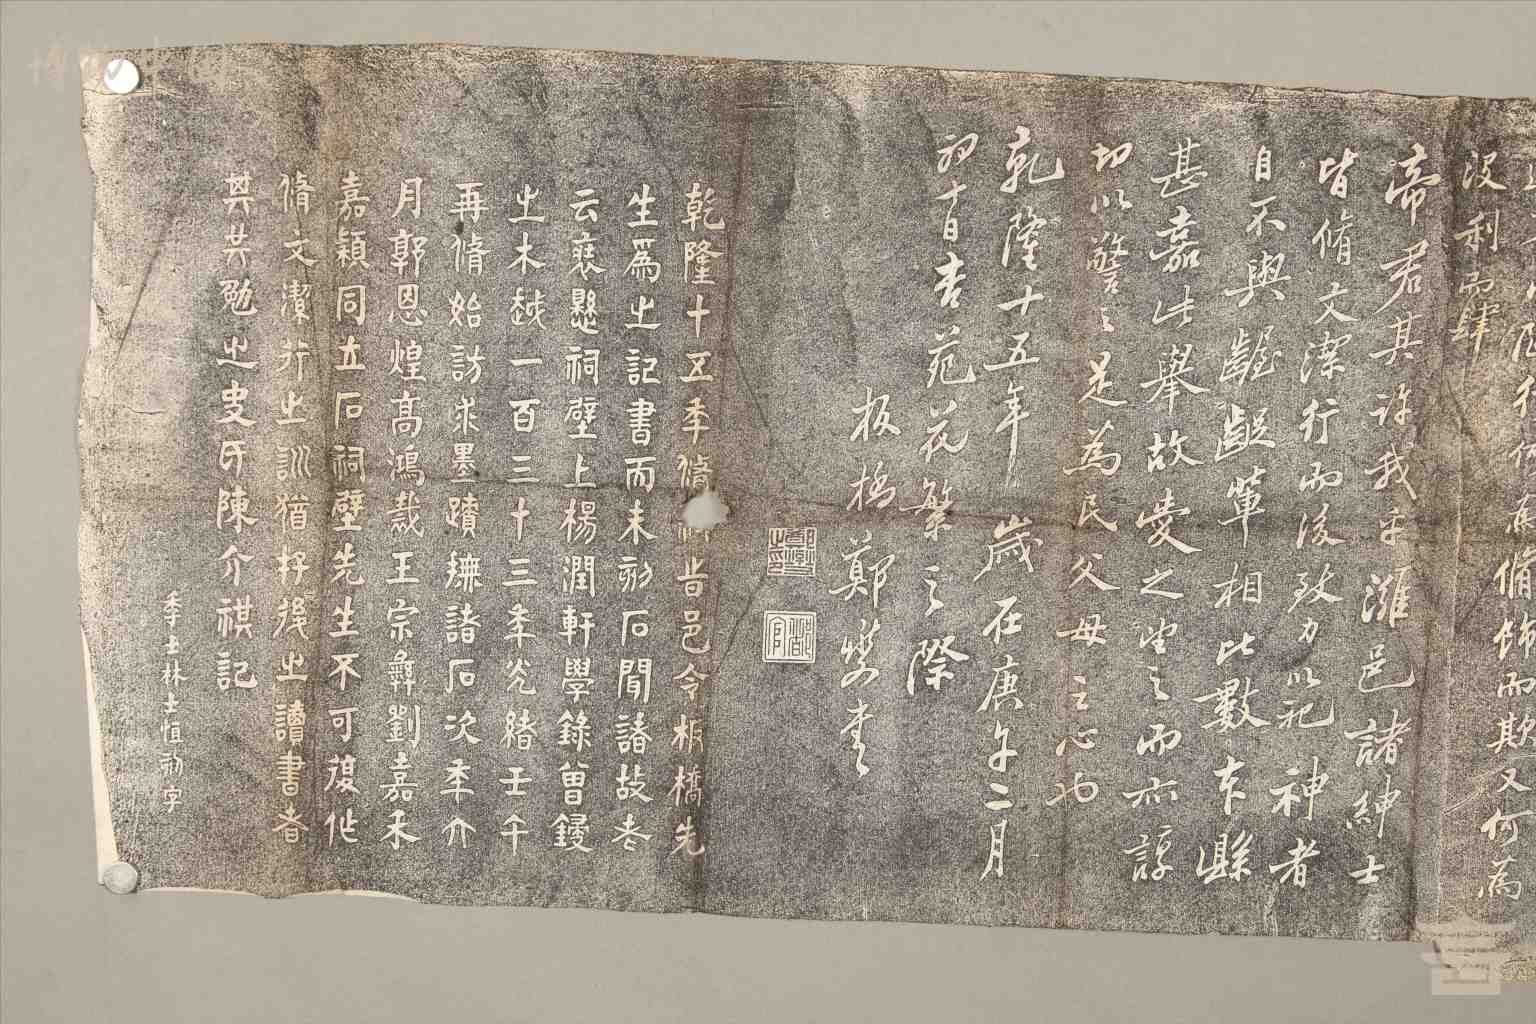 飾而欺又何為
沒利而肆
帝君其許我乎濰邑諸紳士
皆脩文潔行而後致力以祀神者
自不與齷齪輩相比數本縣
甚嘉此舉故愛之望之而亦諄
切以警之是為民父母之心也
乾隆十五年歲在庚午二月
初十日杏苑花繁之際
板橋鄭燮書
鄭燮之印
乾隆十五年脩祠時邑令板橋先
生爲之記書而未刻石聞諸故老
云舊懸祠壁上楊潤軒學錄曾鋟
之木越一百三十三年光緒壬午
再脩始訪求墨蹟橅諸石次年六
月郭恩煌高鴻裁王宗彝劉嘉禾
嘉穎同立石祠壁先生不可復作
脩文潔行之訓猶存後之讀書者
其共勉之史氏陳介祺記
季士林士恒刻字